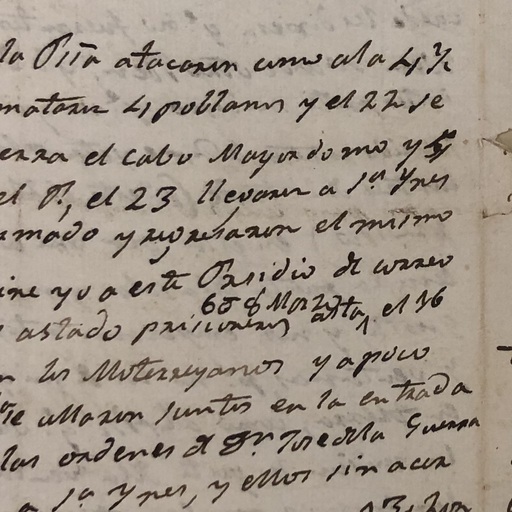 la Pssa atacaron como a la 4 ½
mataron 4 poblanos y el 22 se
erra el cabo Mayordomo y 5
el P., el 23 llevaron a Sta Ynes
rmado y regresaron el mismo
ine yo a este Presidio de correo
6 o 8 Mor
astado pricioneros asta el 16
n los Moterreyanos y a poco
se allaron juntos en la entrada
las ordenes d Dn Jose d la Guerra
a Sta Ynes, y ellos sin acer